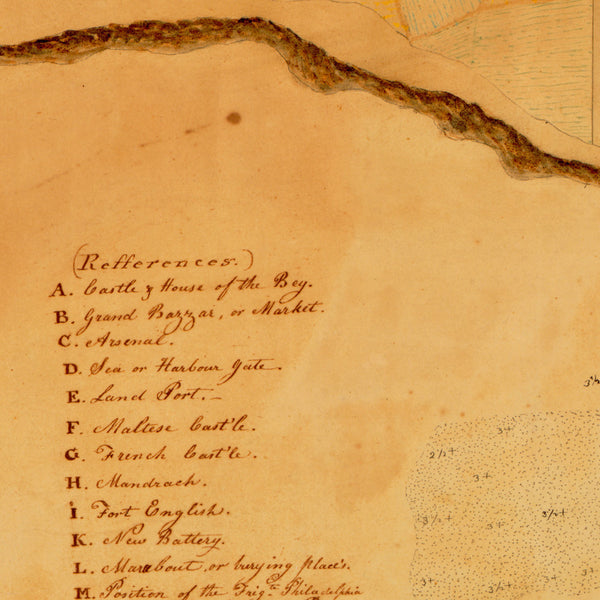 (Refferences.)
A. Castle & House of the Bey.
B. Grand Bazzar, or Market.
C. Arsenal.
D. Sea or Harbour Gate.
E. Land Port.-
F. Maltese Cast'le.
G. French Cast'le.
H. Mandrach.
I. Fort English.
K. New Battery.
L. Marabout, or burying place's.
M. Position of the Frigte Philadelphia
3+
2½+
3+
3½+
3+
3½+
3+
3½+
3+